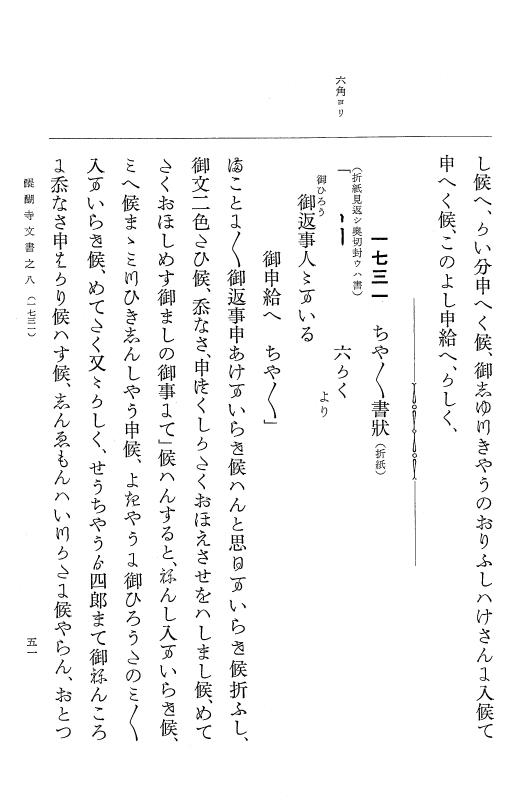 し候へ、らい分申へく候、御志ゆ川きやうのおりふしハけさんよ入候て
申へく候、このよし申給へ、らしく、
六角ヨリ
一七三一　ちや〳〵書狀（折紙）
（折紙見返シ奥切封ウハ書）
「　　六らく　より
御ひろう
御返事人〻まいる
御申給へ　ちや〳〵」
ことよ〳〵御返事申あけまいらせ候ハんと思ひまいらせ候折ふし、
御文二色さひ候、忝なさ、申つくしらさくおほえさせをハしまし候、めて
さくおほしめす御ましの御事よて」候ハんすると、ねんし入まいらせ候、
ミへ候まゝミ川ひき志んしやう申候、よきやうよ御ひろうさのミ〳〵
入まいらせ候、めてさく又〻らしく、せうちやうも四郎まて御ねんころ
よ忝なさ申はらり候ハす候、志んゑもんハい川らさよ候やらん、おとつ
醍醐寺文書之八（一七三一）
五一